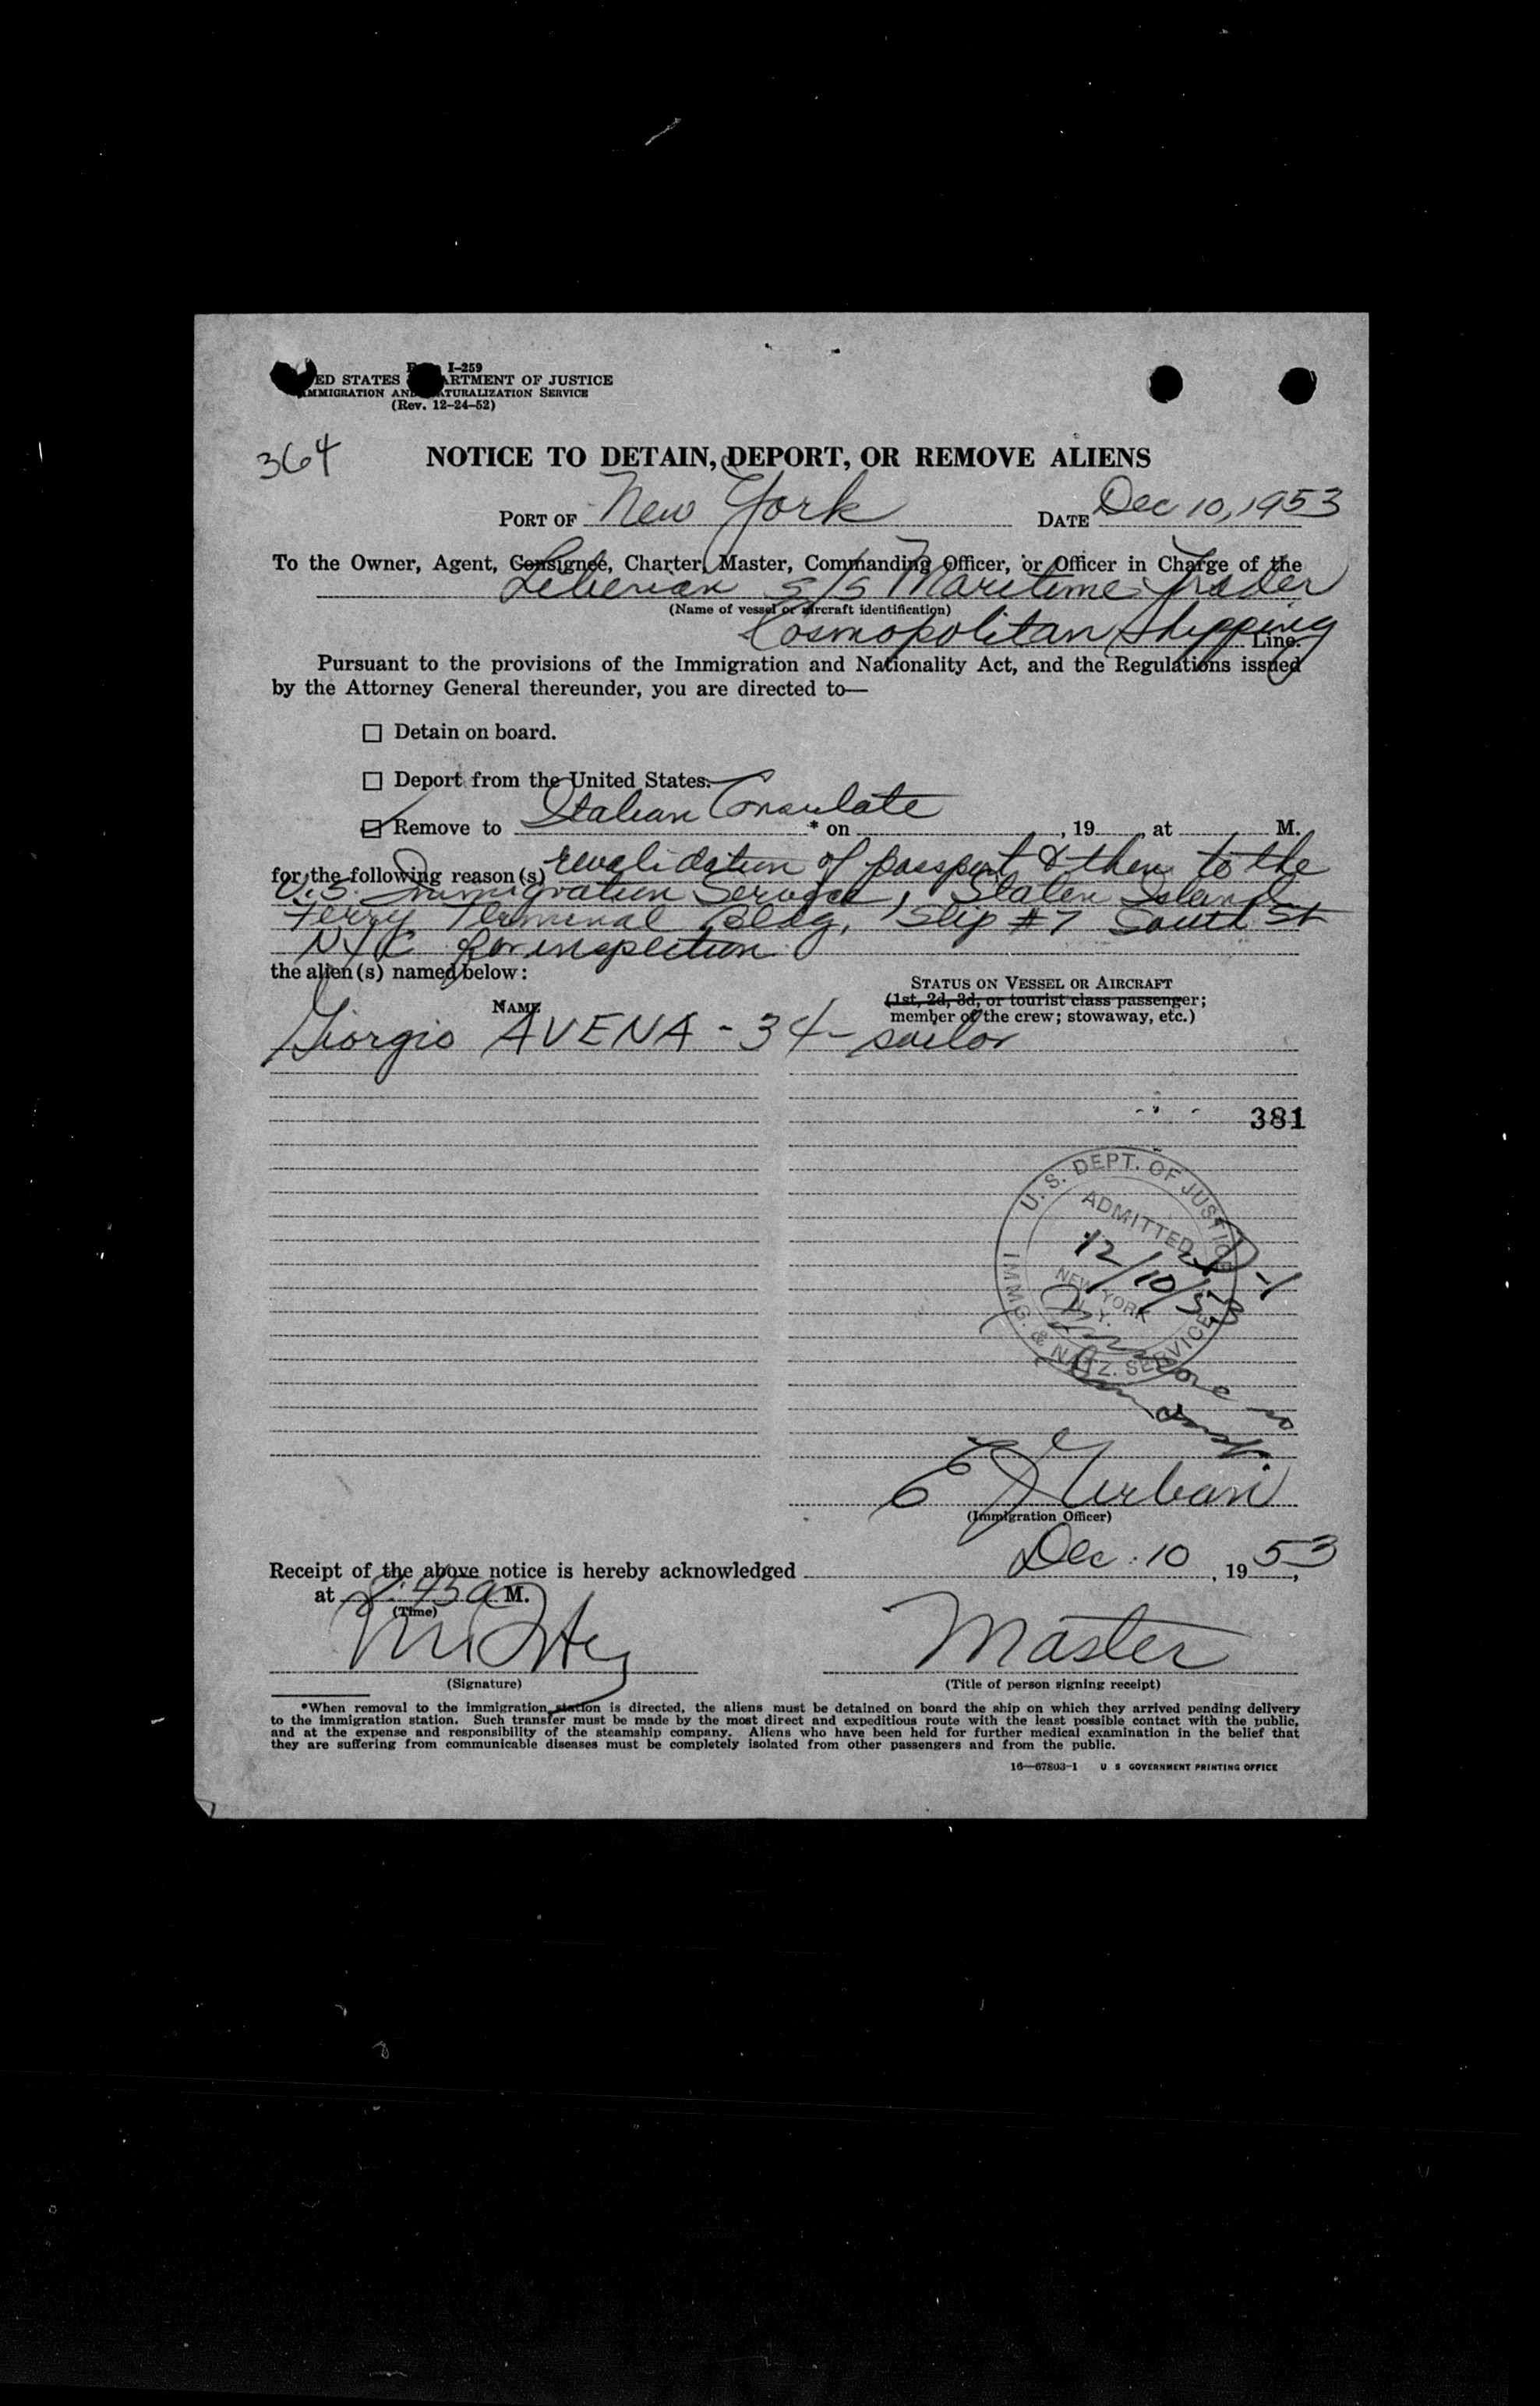 I-259
ED STATES ARTMENT OF JUSTICE
IMMIGRATION AND NATURALIZATION SERVICE
(Rev. 12-24-52)
364
NOTICE TO DETAIN, DEPORT, OR REMOVE ALIENS
PORT OF New York DATE Dec 10, 1953
To the Owner, Agent, Consignee, Charter, Master, Commanding Officer, or Officer in Charge of the
Liberian S/S Maritime Trader
(Name of vessel or aircraft identification)
Cosmopolitan Shipping Line.
Pursuant to the provisions of the Immigration and Nationality Act, and the Regulations issued
by the Attorney General thereunder, you are directed to—
☐ Detain on board.
☐ Deport from the United States.
☑ Remove to Italian Consulate * on , 19 , at M.
for the following reason(s) revalidation of passport & then to the
U.S. Immigration Service, Staten Island
Ferry Terminal Bldg, Slip #7 South St
NYC for inspection
the alien(s) named below:
NAME
STATUS ON VESSEL OR AIRCRAFT
(1st, 2d, 3d, or tourist class passenger;
member of the crew; stowaway, etc.)
Giorgio AVENA - 34 - sailor
381
U. S. DEPT. OF JUSTICE
ADMITTED
12/10/53 D-1
NEW YORK
N. Y.
IMMG. & NATZ. SERVICE
E J Urban
(Immigration Officer)
Receipt of the above notice is hereby acknowledged Dec. 10, 1953,
at 8:45 a M.
(Time)
Master
(Signature) (Title of person signing receipt)
*When removal to the immigration station is directed, the aliens must be detained on board the ship on which they arrived pending delivery
to the immigration station. Such transfer must be made by the most direct and expeditious route with the least possible contact with the public,
and at the expense and responsibility of the steamship company. Aliens who have been held for further medical examination in the belief that
they are suffering from communicable diseases must be completely isolated from other passengers and from the public.
16—67803-1 U S GOVERNMENT PRINTING OFFICE